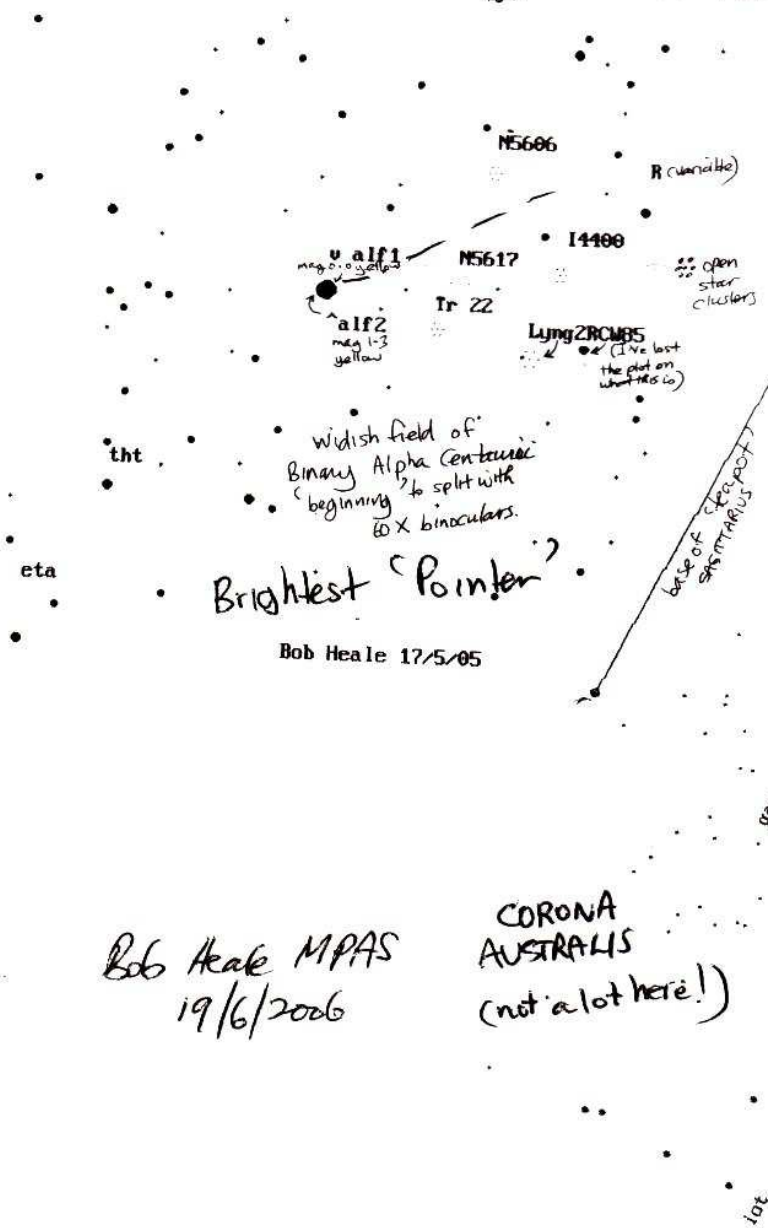 N5606
R (variable)
alf1
mag 0.0 yellow
N5617
I4400
open
star
clusters
Tr 22
alf2
mag 1-3
yellow
Lyng2RCW85
(I've lost
the plot on
what this is)
widish field of
Binary Alpha Centauri
'beginning' to split with
60 X binoculars.
tht
eta
Brightest 'Pointer'
Bob Heale 17/5/05
base of 'teapot'
SAGITTARIUS
Bob Heale MPAS
19/6/2006
CORONA
AUSTRALIS
(not a lot here!)
iot